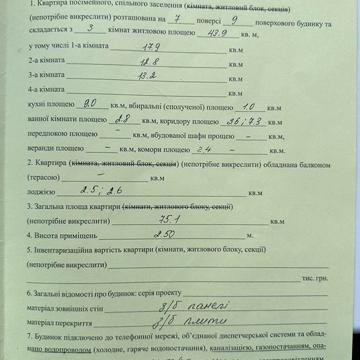 1. Квартира посімейного, спільного заселення (кімната, житловий блок, секція)
(непотрібне викреслити) розташована на 7 поверсі 9 поверхового будинку та
складається з 3 кімнат житловою площею 43.9 кв. м,
у тому числі 1-а кімната 17.9 кв.м
2-а кімната 12.8 кв.м
3-а кімната 13.2 кв.м
4-а кімната кв.м
кухні площею 9.0 кв.м, вбиральні (сполученої) площею 1.0 кв.м
ванної кімнати площею 2.8 кв.м, коридору площею 2.6; 7.3 кв.м
передпокою площею – кв.м, вбудованої шафи площею – кв.м,
веранди площею – кв.м, комори площею 2.4 – кв.м.
2. Квартира (кімната, житловий блок, секція) (непотрібне викреслити) обладнана балконом
(терасою) – кв.м
лоджією 2.5; 2.6 кв.м
3. Загальна площа квартири (кімнати, житлового блоку, секції)
(непотрібне викреслити) 75.1 кв.м
4. Висота приміщень 2.50 м.
5. Інвентаризаційна вартість квартири (кімнати, житлового блоку, секції)
(непотрібне викреслити)
тис. грн.
6. Загальні відомості про будинок: серія проекту
матеріал зовнішніх стін з/б панелі
матеріал перекриття з/б плити
7. Будинок підключено до телефонної мережі, об'єднаної диспетчерської системи та облад-
нано водопроводом (холодне, гаряче водопостачання), каналізацією, газопостачанням, опа-